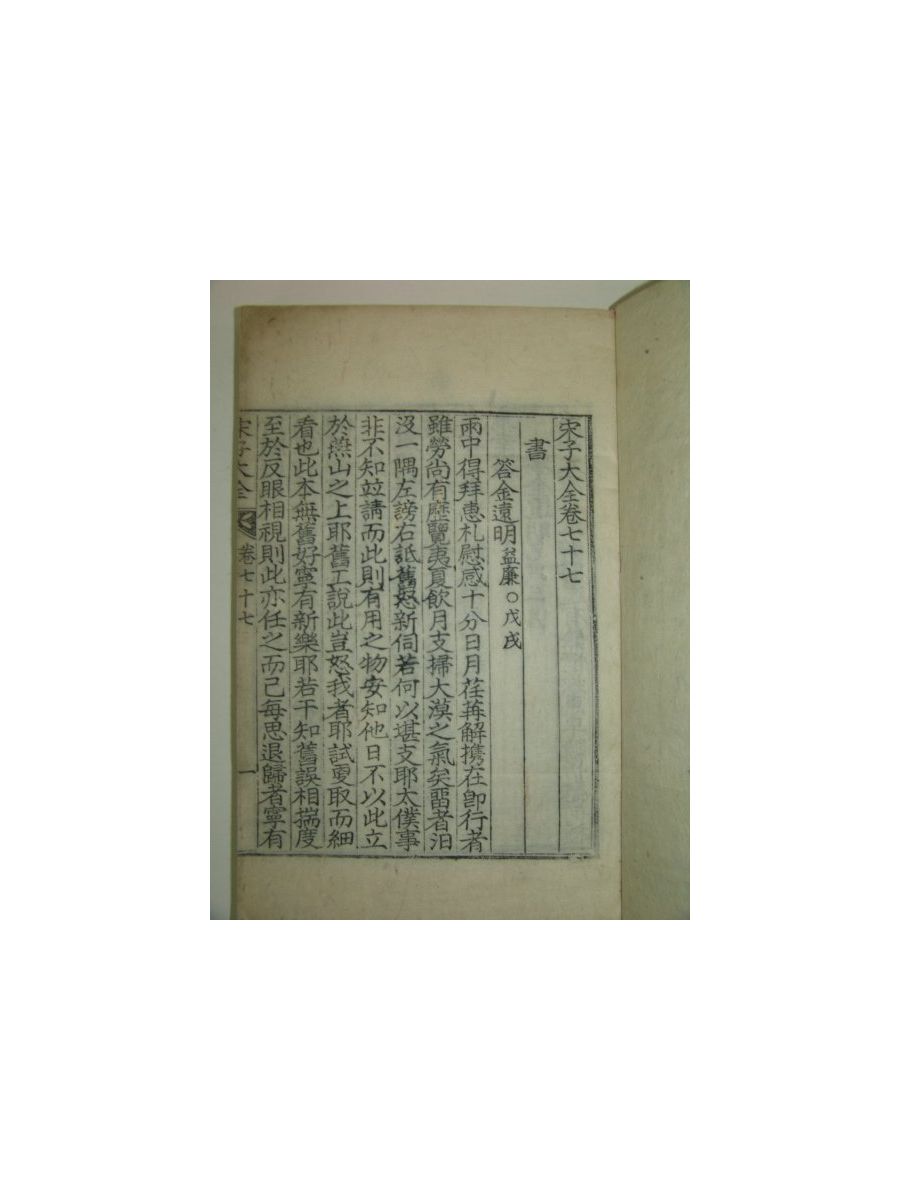 宋子大全卷七十七
書
答金遠明益廉○戊戌
雨中得拜惠札慰感十分日月荏苒解携在卽行者
雖勞尚有歷覽夷夏飮月支掃大漠之氣矣留者汨
沒一隅左謗右詆舊怒新伺若何以堪支耶太僕事
非不知竝請而此則有用之物安知他日不以此立
於燕山之上耶舊工說此豈怒我者耶試更取而細
看也此本無舊好寧有新樂耶若干知舊誤相揣度
至於反眼相視則此亦任之而已每思退歸者寧有
宋子大全 卷七十七 一